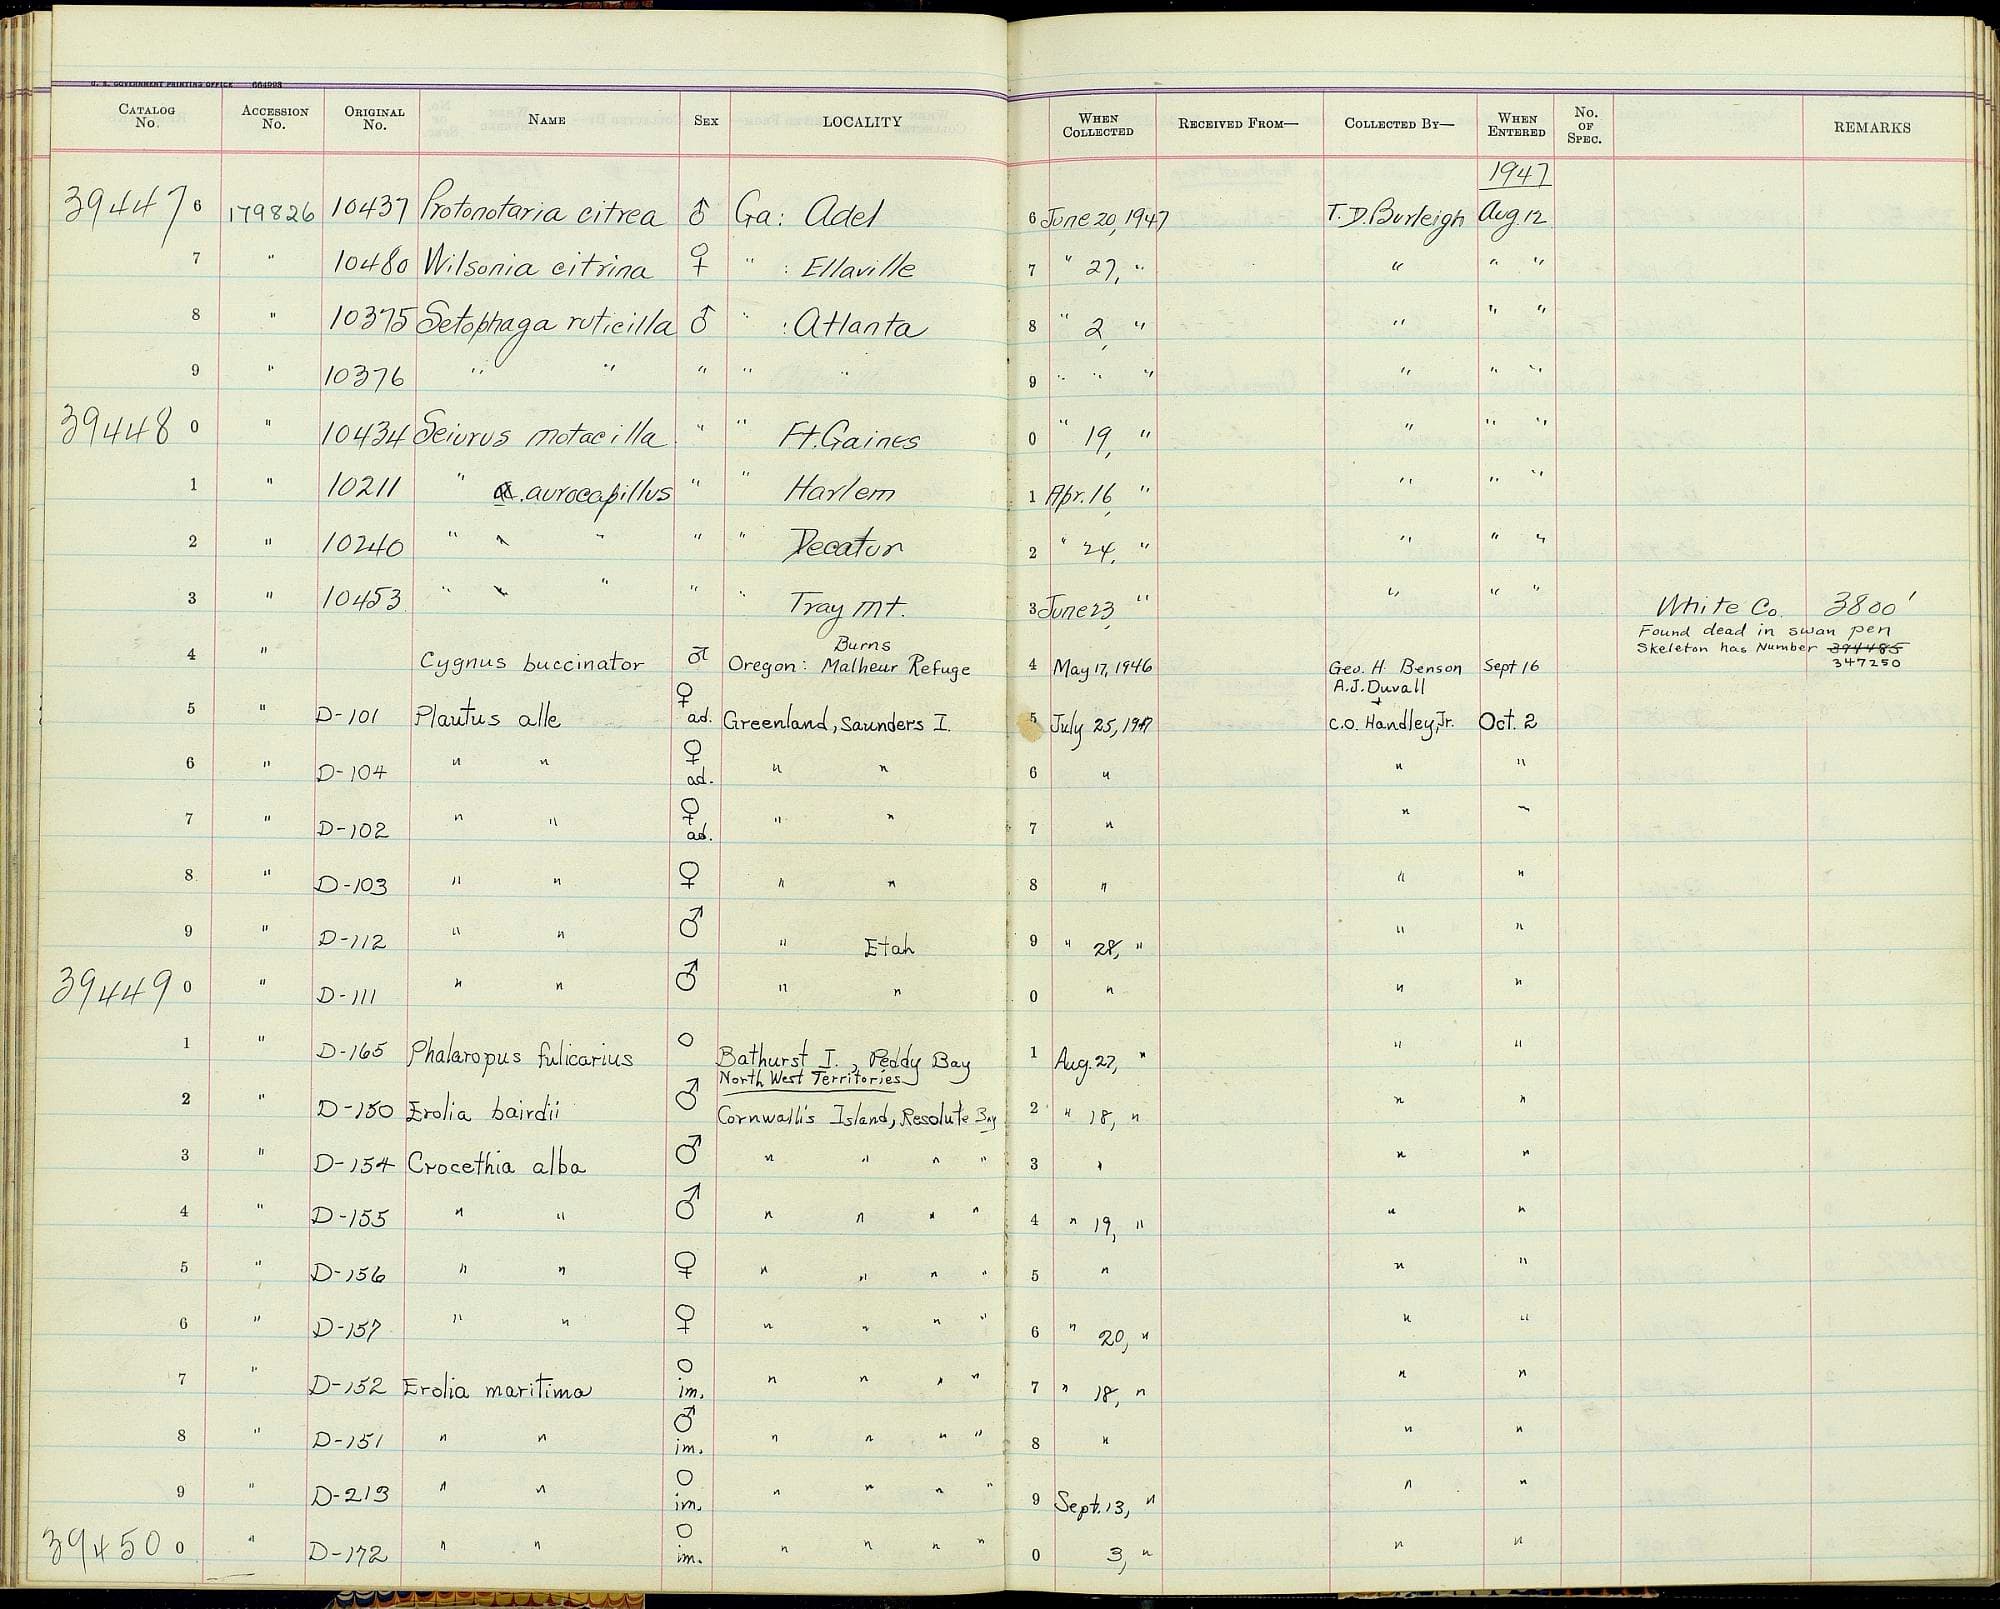 U. S. GOVERNMENT PRINTING OFFICE 664998
CATALOG No. ACCESSION No. ORIGINAL No. NAME SEX LOCALITY WHEN COLLECTED RECEIVED FROM— COLLECTED BY— WHEN ENTERED No. OF SPEC. REMARKS
1947
39447 6 179826 10437 Protonotaria citrea ♂ Ga: Adel 6 June 20, 1947 T. D. Burleigh Aug. 12
7 " 10480 Wilsonia citrina ♀ " : Ellaville 7 " 27, " " " "
8 " 10375 Setophaga ruticilla ♂ " : Atlanta 8 " 2, " " " "
9 " 10376 " " " " " 9 " " " " " "
39448 0 " 10434 Seiurus motacilla " " Ft. Gaines 0 " 19, " " " "
1 " 10211 " a. aurocapillus " " Harlem 1 Apr. 16, " " " "
2 " 10240 " " " " " Decatur 2 " 24, " " " "
3 " 10453 " " " " " Tray Mt. 3 June 23, " " " " White Co. 3800'
Found dead in swan pen
Skeleton has Number 394485
347250
4 " Cygnus buccinator ♂ Oregon: Burns Malheur Refuge 4 May 17, 1946 Geo. H. Benson Sept 16
A.J. Duvall
+
5 " D-101 Plautus alle ♀ ad. Greenland, Saunders I. 5 July 25, 1947 C.O. Handley, Jr. Oct. 2
6 " D-104 " " ♀ ad. " " 6 " " "
7 " D-102 " " ♀ ad. " " 7 " " "
8 " D-103 " " ♀ " " 8 " " "
9 " D-112 " " ♂ " Etah 9 " 28, " " "
39449 0 " D-111 " " ♂ " " 0 " " "
1 " D-165 Phalaropus fulicarius O Bathurst I., Peddy Bay 1 Aug. 27, " " "
North West Territories
2 " D-150 Erolia bairdii ♂ Cornwallis Island, Resolute Bay 2 " 18, " " "
3 " D-154 Crocethia alba ♂ " " " " 3 " " "
4 " D-155 " " ♂ " " " " 4 " 19, " " "
5 " D-156 " " ♀ " " " " 5 " " "
6 " D-157 " " ♀ " " " " 6 " 20, " " "
7 " D-152 Erolia maritima O im. " " " " 7 " 18, " " "
8 " D-151 " " ♂ im. " " " " 8 " " "
9 " D-213 " " O im. " " " " 9 Sept. 13, " " "
39450 0 " D-172 " " O im. " " " " 0 3, " " "